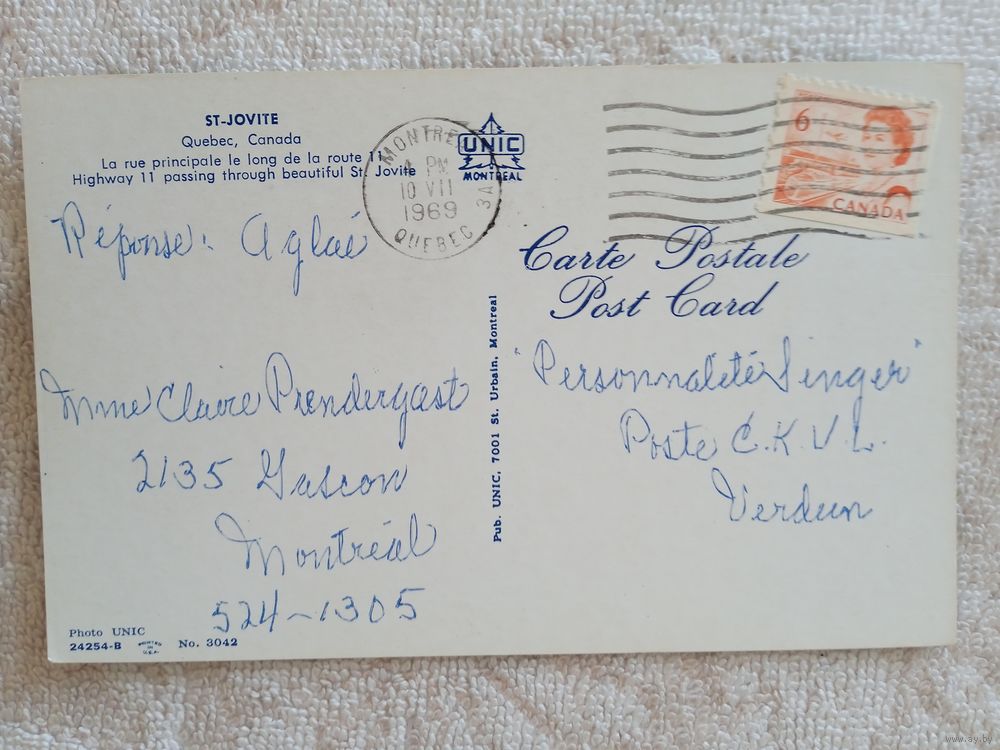 ST-JOVITE
Quebec, Canada
La rue principale le long de la route 11
Highway 11 passing through beautiful St. Jovite
MONTRE
PM
10 VII
1969
QUEBEC
3A
UNIC
MONTREAL
6
CANADA
Réponse: Aglaé
Mme Claire Prendergast
2135 Gascon
Montréal
524-1305
Carte Postale
Post Card
Pub. UNIC, 7001 St. Urbain, Montreal
"Personnalité Singer"
Poste C.K.V.L.
Verdun
Photo UNIC
24254-B
PRINTED
IN
U.S.A.
No. 3042
www.ay.by